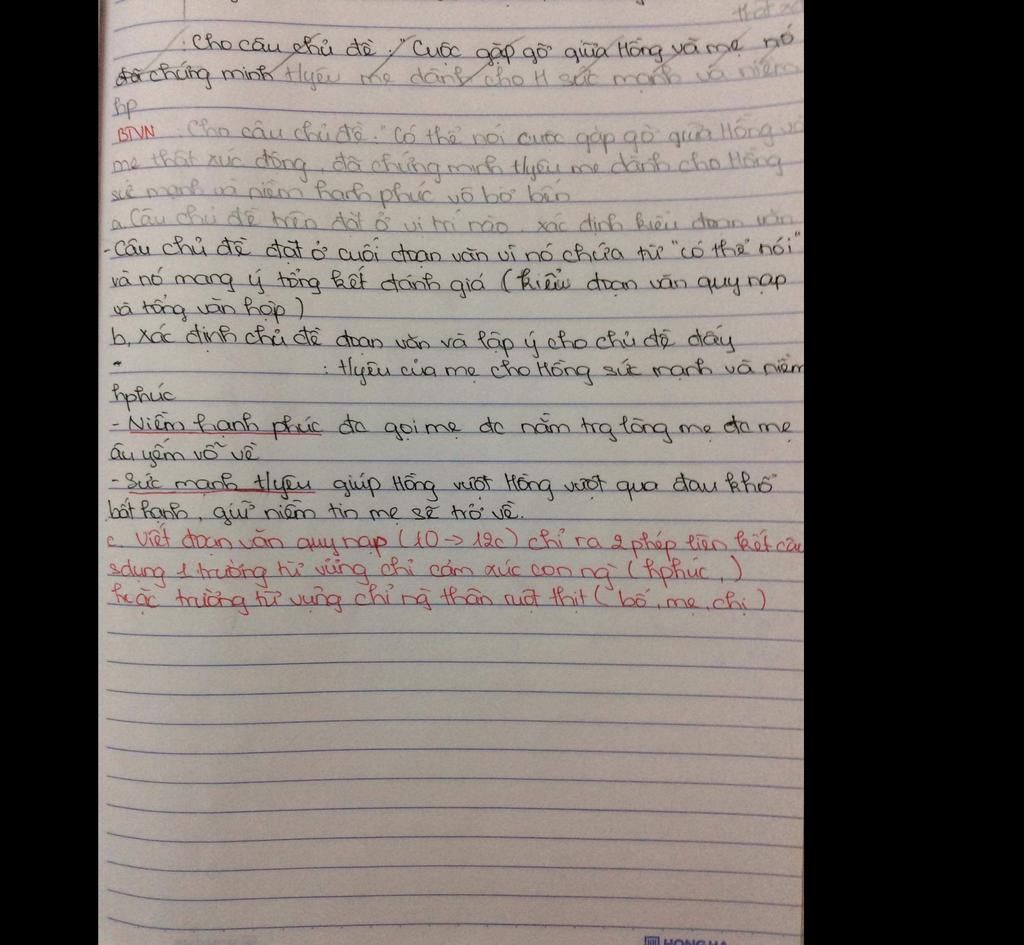 thật xúc
: Cho câu chủ đề: "Cuộc gặp gỡ giữa Hồng và mẹ nó
đã chứng minh t/yêu mẹ dành cho H sức mạnh và niềm
hp
BTVN : Cho câu chủ đề: "Có thể nói cuộc gặp gỡ giữa Hồng và
mẹ thật xúc động, đã chứng minh t/yêu mẹ dành cho Hồng
sức mạnh và niềm hạnh phúc vô bờ bến
a. Câu chủ đề trên đặt ở vị trí nào. xác định kiểu đoạn văn
- Câu chủ đề đặt ở cuối đoạn văn vì nó chứa từ "có thể nói"
và nó mang ý tổng kết đánh giá (kiểu đoạn văn quy nạp
và tổng vân hợp)
b, xác định chủ đề đoạn văn và lập ý cho chủ đề đấy
: t/yêu của mẹ cho Hồng sức mạnh và niềm
hphúc
- Niềm hạnh phúc đc gọi mẹ đc nằm trg lòng mẹ đc mẹ
âu yếm vỗ về
- Sức mạnh t/yêu giúp Hồng vượt Hồng vượt qua đau khổ
bất hạnh, giữ niềm tin mẹ sẽ trở về.
c. Viết đoạn văn quy nạp (10 → 12c) chỉ ra 2 phép liên kết câu
sdụng 1 trường từ vững chỉ cảm xúc con ng` (hphúc,)
hoặc trường từ vựng chỉ ng` thân ruột thịt (bố, mẹ, chị)
HONG HA